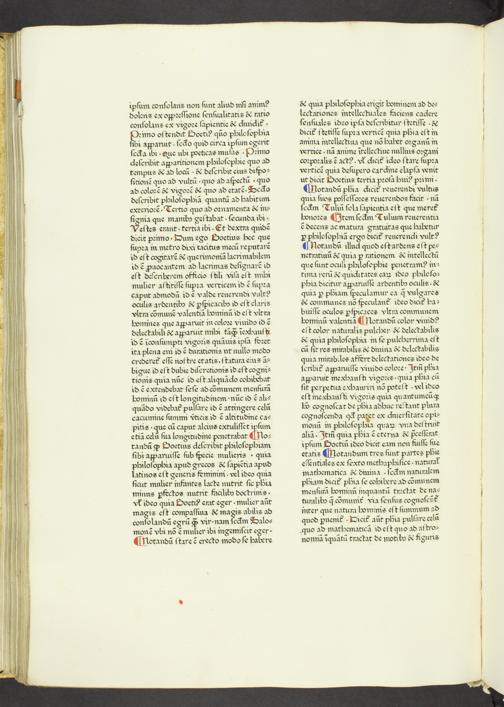 ipsum consolans non sunt aliud nisi anim⁹
dolens ex oppressione sensualitatis & ratio
consolans ex vigore sapientie & dividit᷑.
Primo ostendit Boeti⁹ quō philosophia
sibi apparuit. scd̄o quid circa ipsum egerit
scd̄a ibi. Que ubi poeticas musas. Primo
describit apparitionem philosophie quo ad
tempus & ad locū. & describit eius dispo
sitionē quo ad vultū. quo ad aspectū. quo
ad colorē & vigorē & quo ad etatē. Scd̄o
describit philosophiam quantū ad habitum
exteriorē. Tertio quo ad ornamenta & in
signia que manib⁹ gestabat. secunda ibi.
Vestes erant. tertia ibi. Et dextra quidē
dicit primo. Dum ego Boetius hec que
supra in metro dixi tacitus mecū reputarē
id est cogitarē & querimoniā lacrimabilem
id ē ꝓuocantem ad lacrimas designarē id
est describerem officio stili visa est mihi
mulier astitisse supra verticem id ē supra
caput admodū id ē valde reuerendi vult⁹
oculis ardentibus & ꝑspicacib⁹ id est claris
vltra cōmunē valentiā hominū id est vltra
homines que apparuit in colore viuido id ē
delectabili & apparuit mihi
id ē incōsumpti vigoris quāuis ipsa foret
ita plena eui id ē durationis ut nullo modo
crederet᷑ esse nostre etatis. statura eius ā
bigue id est dubie discretionis id est cogni
tionis quia nūc id est aliquādo cohibebat
id ē extendebat sese ad cōmunem mensurā
hominū id est longitudinem. nūc id ē ali
quādo videbat᷑ pulsare id ē attingere celū
cacumine summi v̄ticis id ē altitudine ca
pitis. que cū caput alcius extulisset ipsum
etiā celū sua longitudine penetrabat ¶No
tandū ꝙ Boetius describit philosophiam
sibi apparuisse sub specie mulieris. quia
philosophia apud grecos & sapiētia apud
latinos est generis feminini. vel ideo quia
sicut mulier infantes lacte nutrit sic phīa
minus ꝑfectos nutrit facilib⁹ doctrinis.
vel ideo quia Boeti⁹ erat eger. mulier aūt
magis est compassiua & magis abilis ad
consolandū egrū ꝙ vir. nam scd̄m Salo
monē vbi nō ē mulier ibi ingemiscit eger.
¶Notandū stare ē erecto modo se habere
& quia philosophia erigit hominem ad de
lectationes intellectuales faciens cadere
sensuales ideo ipsa describitur stetisse. &
dicit᷑ stetisse supra verticē quia phīa est in
anima intellectiua que nō habet organū in
vertice. nā anime ītellectiue nullius organi
corporalis ē act⁹. vl᷑ dicit᷑ ideo stare supra
verticē quia desupero cardine elapsa venit
ut dicit Boetius tertia prosa hui⁹ primi.
¶Notandū phīa dicit᷑ reuerendi vultus
quia suos possessores reuerendos facit. nā
scd̄m Tuliū sola sapientia est que meret᷑
honores ¶Item scd̄m Tulium reuerentia
ē decens ac matura grauitas que habetur
ꝑ philosophiā ergo dicit᷑ reuerendi vult⁹
¶Notandū illud quod est ardens est pe
netratiuū & quia ꝑ rationem & intellectū
que sunt oculi philosophie penetram⁹ in
tima rerū & quiditates earū ideo philoso
phia dicitur apparuisse ardentib⁹ oculis. &
quia ꝑ phīam speculamur ea que vulgares
& cōmunes nō speculant᷑ ideo dicit᷑ ha
buisse oculos ꝑspicaces vltra communem
hominū valentiā ¶Notandū color viuid⁹
est color naturalis pulcher & delectabilis
& quia philosophia in se pulcherrima est
cū sit res mirabilis & diuina & delectabilis
quia mirabiles affert delectationes ideo de
scribit᷑ apparuisse viuido colore. Itm̄ phīa
apparuit inexhausti vigoris. quia phīa cū
sit perpetua exhauriri nō potest. vel ideo
est inexhausti vigoris quia quantumcūqꝫ
hō cognoscat de phīa adhuc restant plura
cognoscenda. qd̄ patet ex diuersitate opi
nionū in philosophia quaꝝ vna destruit
aliā. Itm̄ quia phīa ē eterna & p̄cesserat
ipsum Boetiū ideo dicit eam non fuisse sue
etatis ¶Notandum tres sunt partes phīe
essentiales ex sexto methaphisice. naturalis
mathematica & diuina. scd̄m naturalem
phīam dicit᷑ phīa se cohibere ad cōmunem
mensurā hominū inquantū tractat de na
turalib⁹ que cōmunit᷑ via sensus cognoscunt᷑
inter que natura hominis est summum ad
quod ꝑuenit᷑. Dicit᷑ aūt phīa pulsare celū
quo ad mathematicā id est quo ad astro
nomiā inquātū tractat de motib⁹ & figuris